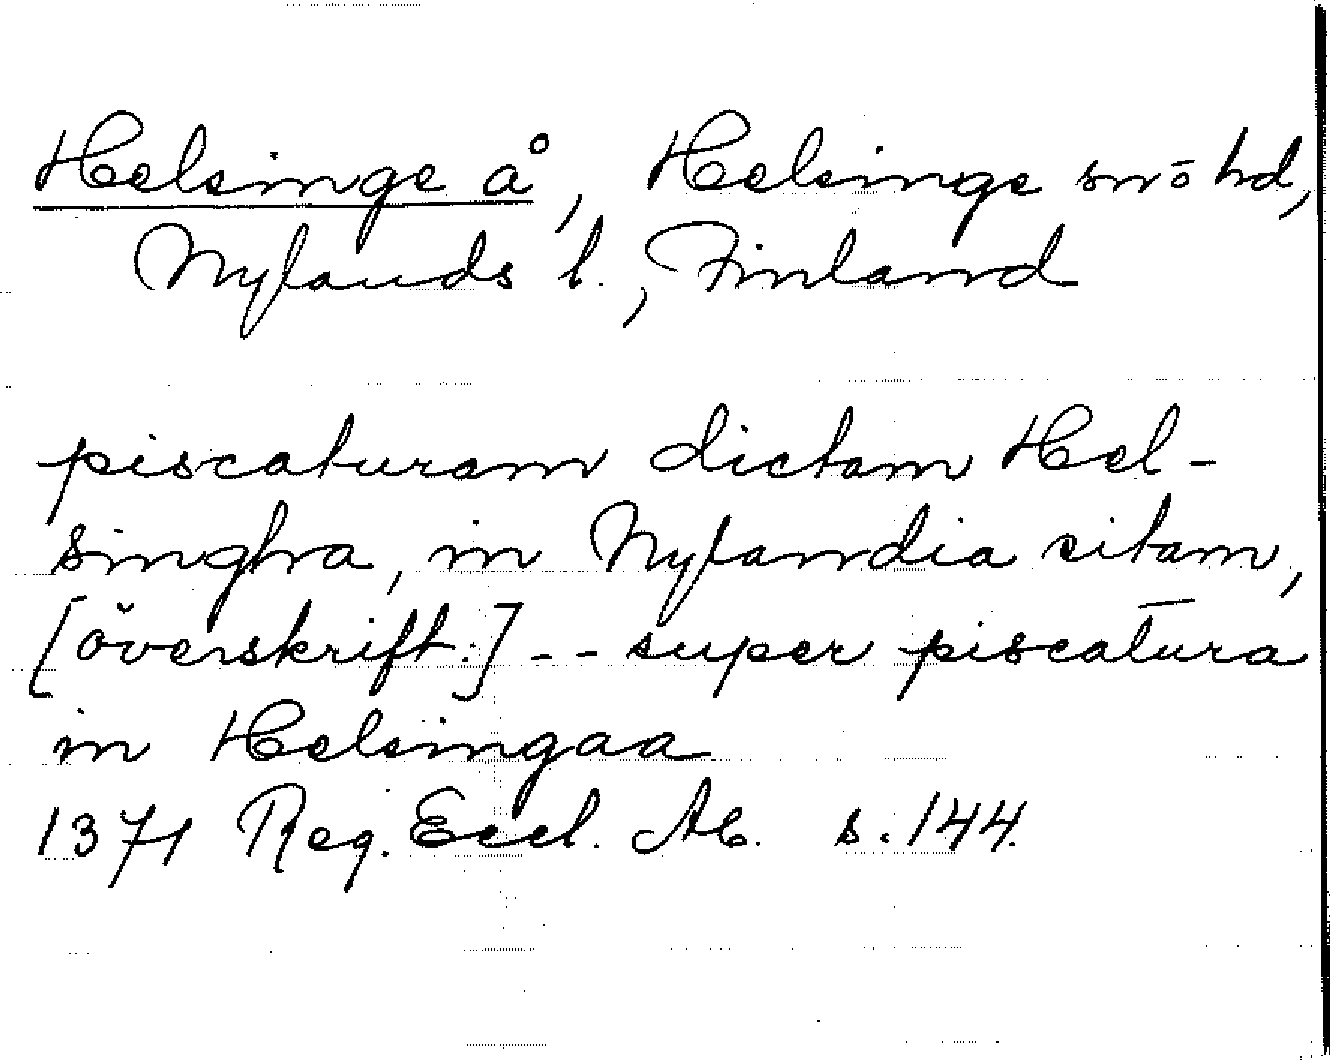 Helsinge å, Helsinge sn ō hd,
Nylands l., Finland
piscaturam dictam Hel-
singhra, in Nylandia sitam,
[överskrift:] -- super piscatura
in Helsingaa
1371 Reg. Eccl. Ab. s. 144.